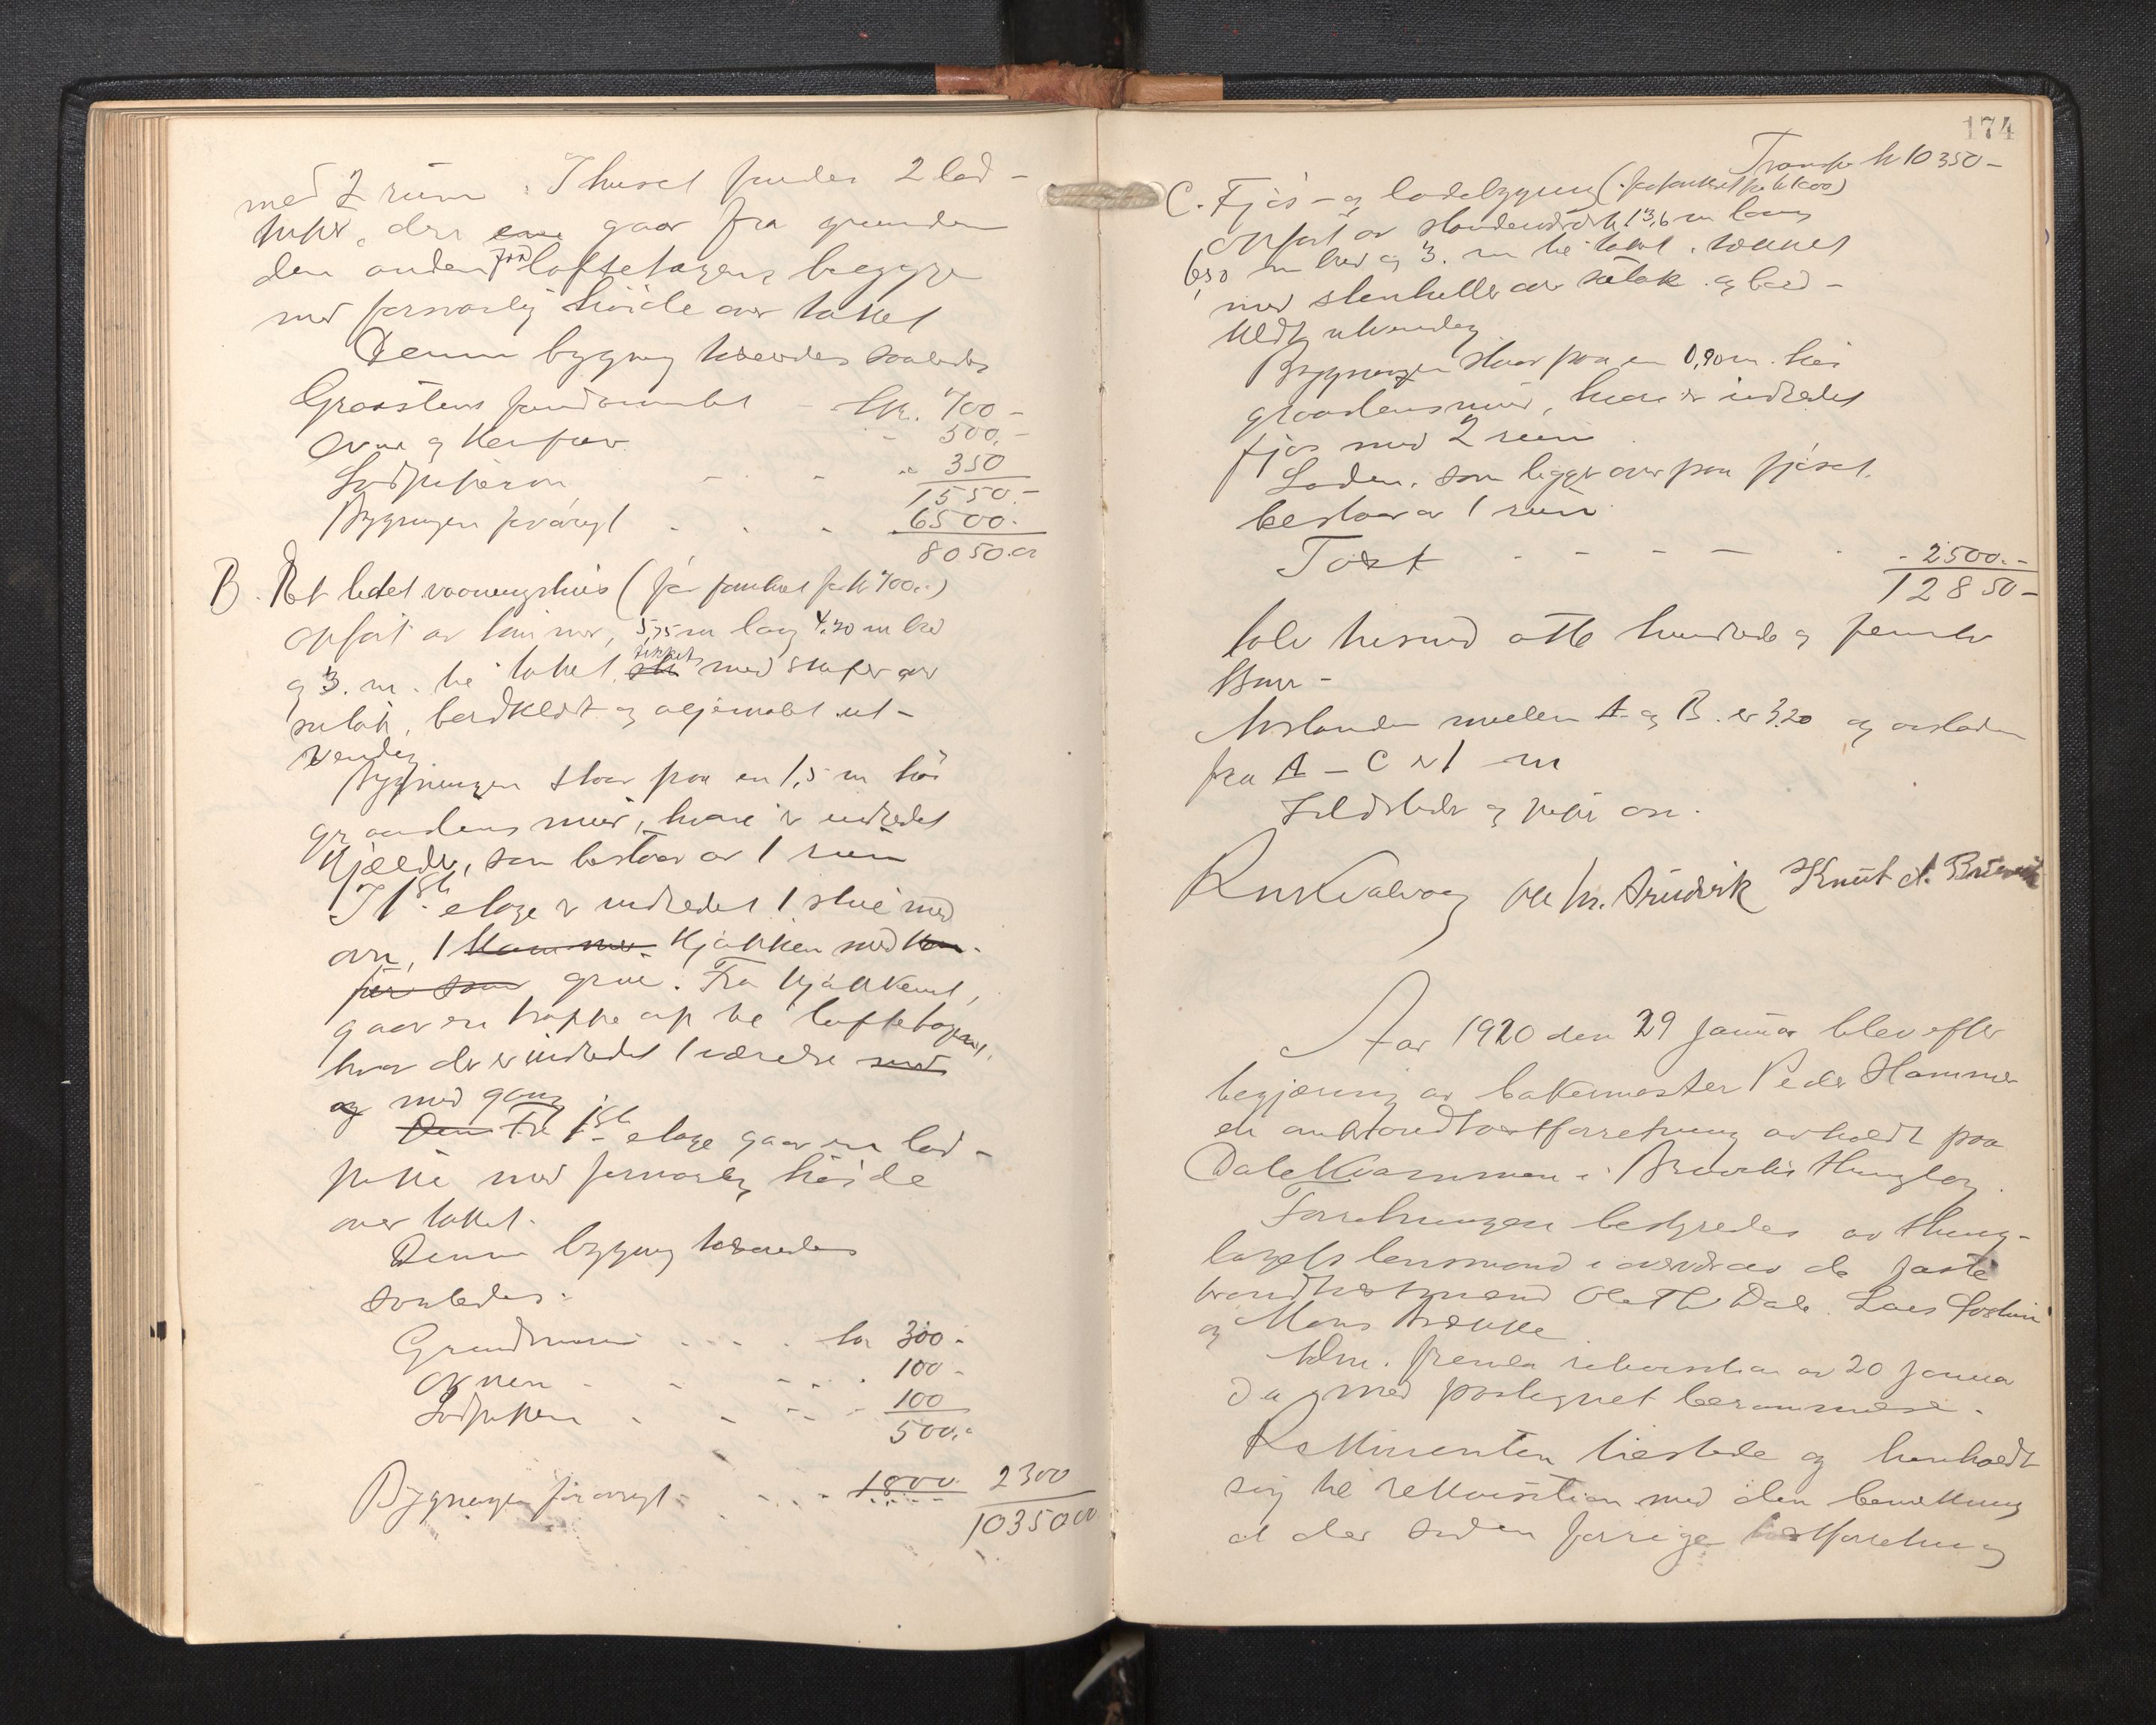 med 2 rum. I huset findes 2 lod-
piper, der ene gaar fra grunden
den anden fra loftetagen, begge
med forsvarlig høide over taket
Denne bygning takseredes saaledes
Graastens fundamentet - kr. 700 -
Ovne og komfur - 500.-
Lodpiperne - - " 350
1550.-
Bygningen forøvrigt - - - 6500.-
8050.00
B. Et lidet vaaningshus (før funket for kr 700.-)
opført av tømmer, 5,75 m lang 4,20 m bred
og 3. m. til taket, tekket med skifer av
sutak, bordklædt og oljemalet ut-
vendig
Bygningen staar paa en 1,5 m høi
graastensmur, hvori er indredet
kjælder, som bestaar av 1 rum
I 1ste etage er indredet 1 stue med
ovn, 1 kammer kjøkken med kom-
für som grue. Fra kjøkkenet,
gaar en trappe op til loftetagen,
hvor der er indredet 1 værelse med
og med gang
Den Fra 1ste etage gaar en lod-
pipe med forsvarlig høide
over taket.
Denne bygning takseredes
saaledes.
Grundmuren - - - - kr 300.-
Ovnen - - - - - 100-
Lodpipen - - - - - 100
500.-
Bygningen forøvrigt - - - - 1800 2300
10350 00
174
Transp. kr 10350-
C. Fjøs- og ladebygning
opført av standerværk 13,6 m lang
6,50 m bred og 3. m til taket, tækket
med stenheller av sutak og bord-
klædt utvendig
Bygningen staar paa en 0,90 m. høi
graastensmur, hvori er indredet
fjøs med 2 rum
Laden, som ligger over paa fjøset,
bestaar av 1 rum
Takst - - - - - - 2500.-
12850-
tolv tusind otte hundrede og femti
kroner -
Avstanden mellem A og B. er 3.20 og avstanden
fra A - C er 1 m
Ildsteder og piper
Knut A.
Aar 1920 den 29 januar blev efter
begjæring av bakermester Peder Hammer
en omtakstforretning avholdt paa
Dalekvammen i Bruvik thinglag.
Forretningen bestyredes av thing-
lagets lensmand i overvær av de faste
brandtakstmænd Ole Th Dale, Lars
og Mons
Adm. fremla rekvisition av 20 januar
d.a. med paategnet berammelse.
Rekvirenten tilstede og henholdt
sig til rekvisition med den bemerkning
at der siden forrige takstforretning